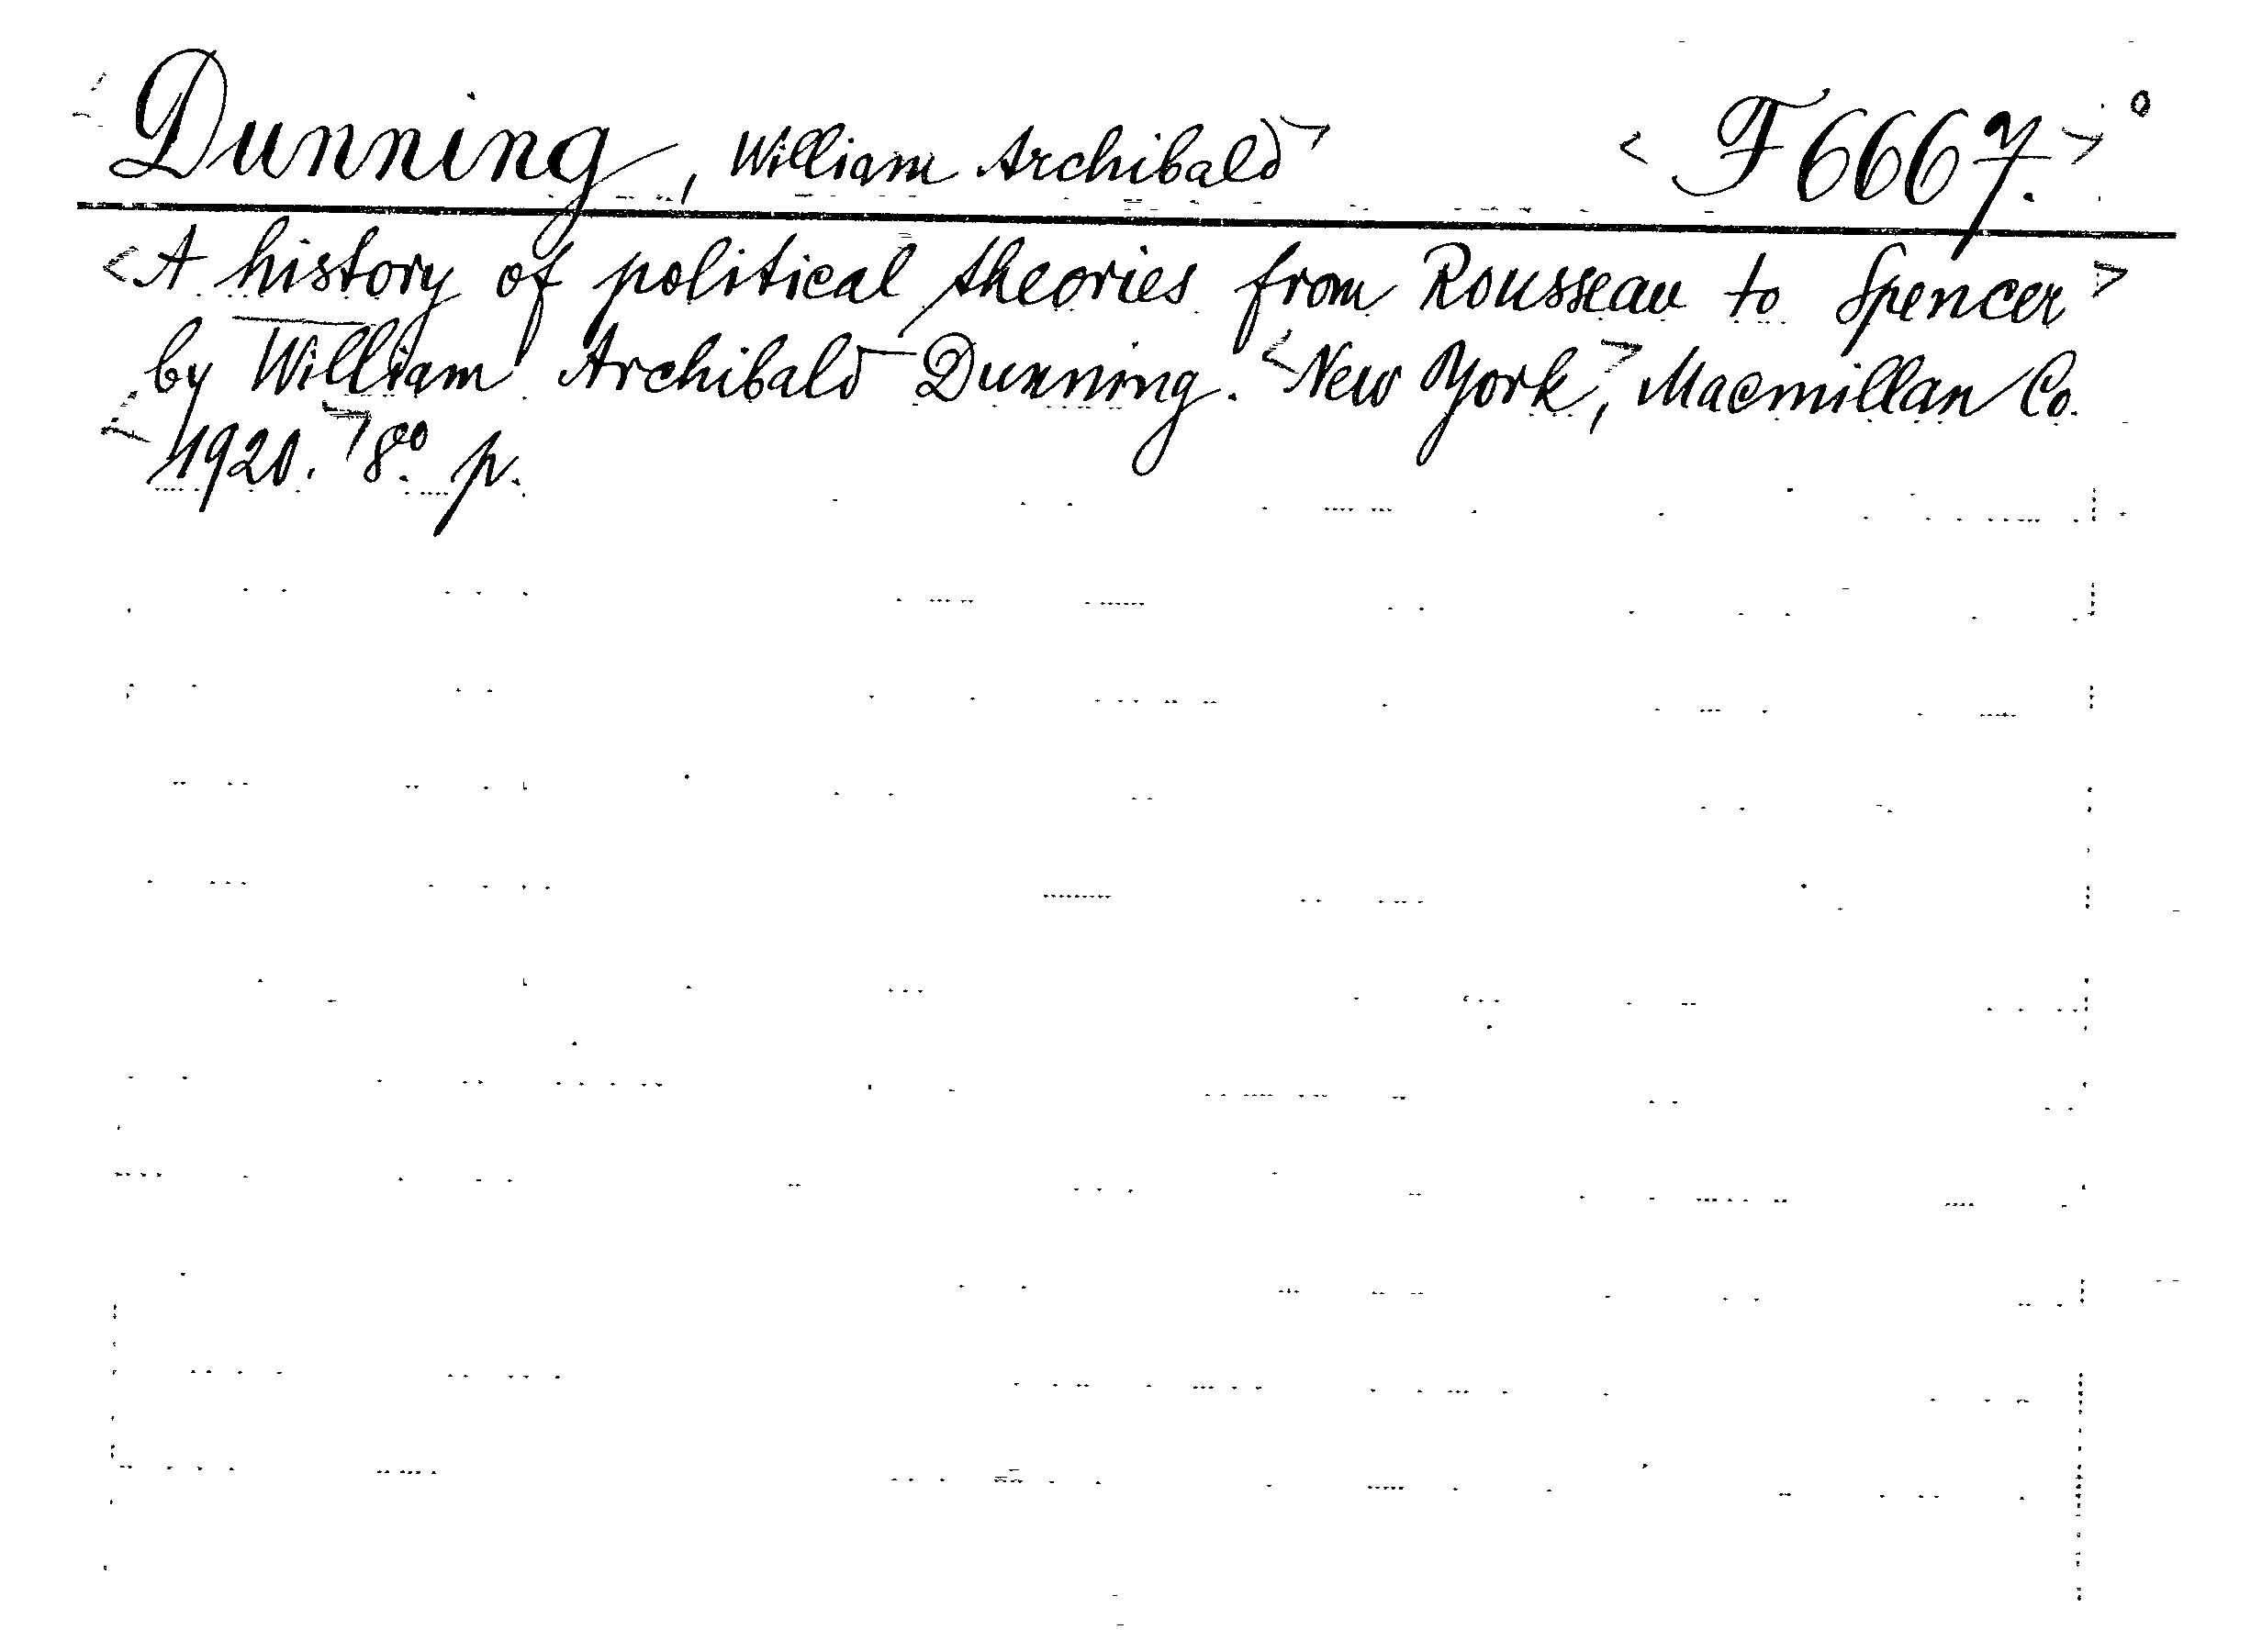 <Dunning, William Archibald> <F 6667.> o
<A history of political theories from Rousseau to Spencer>
by William Archibald Dunning. <New York>, Macmillan Co.
<1920.> 8.° p.